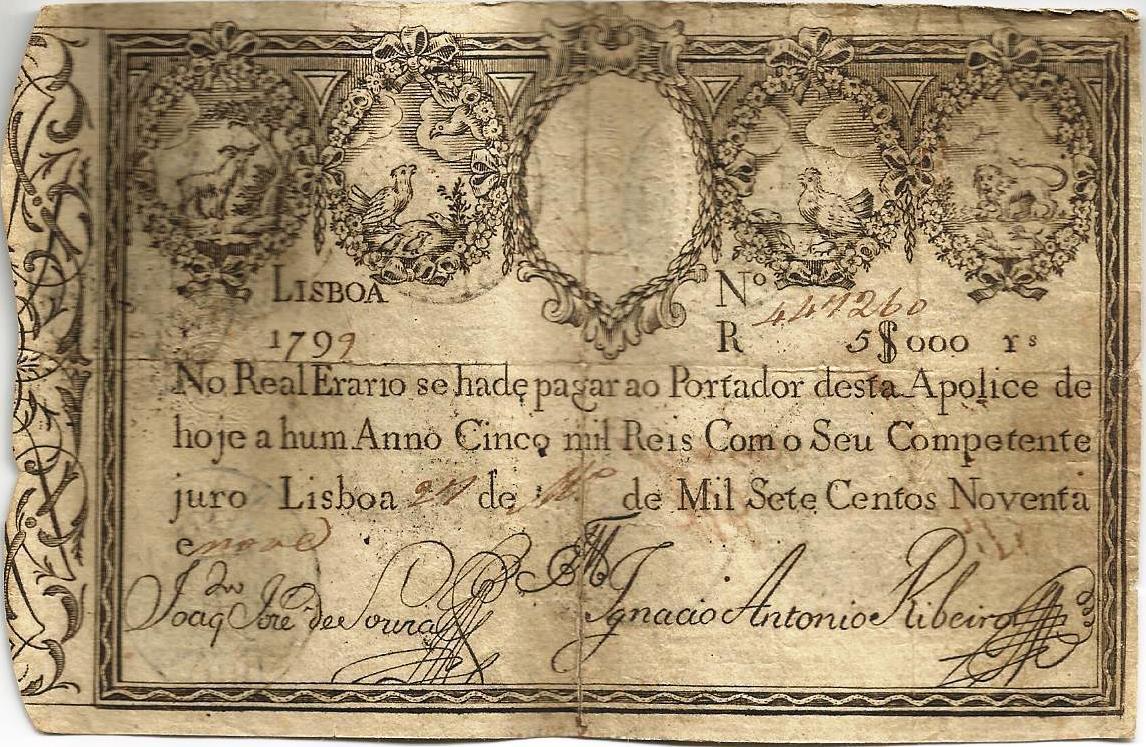 LISBOA
Nº 447260
1799
R 5$000 rs
No Real Erario se hade pagar ao Portador desta Apolice de
hoje a hum Anno Cinco mil Reis Com o Seu Competente
juro Lisboa 27 de de Mil Sete Centos Noventa
e nove
Joaqm Jose de Souza
Ignacio Antonio Ribeiro